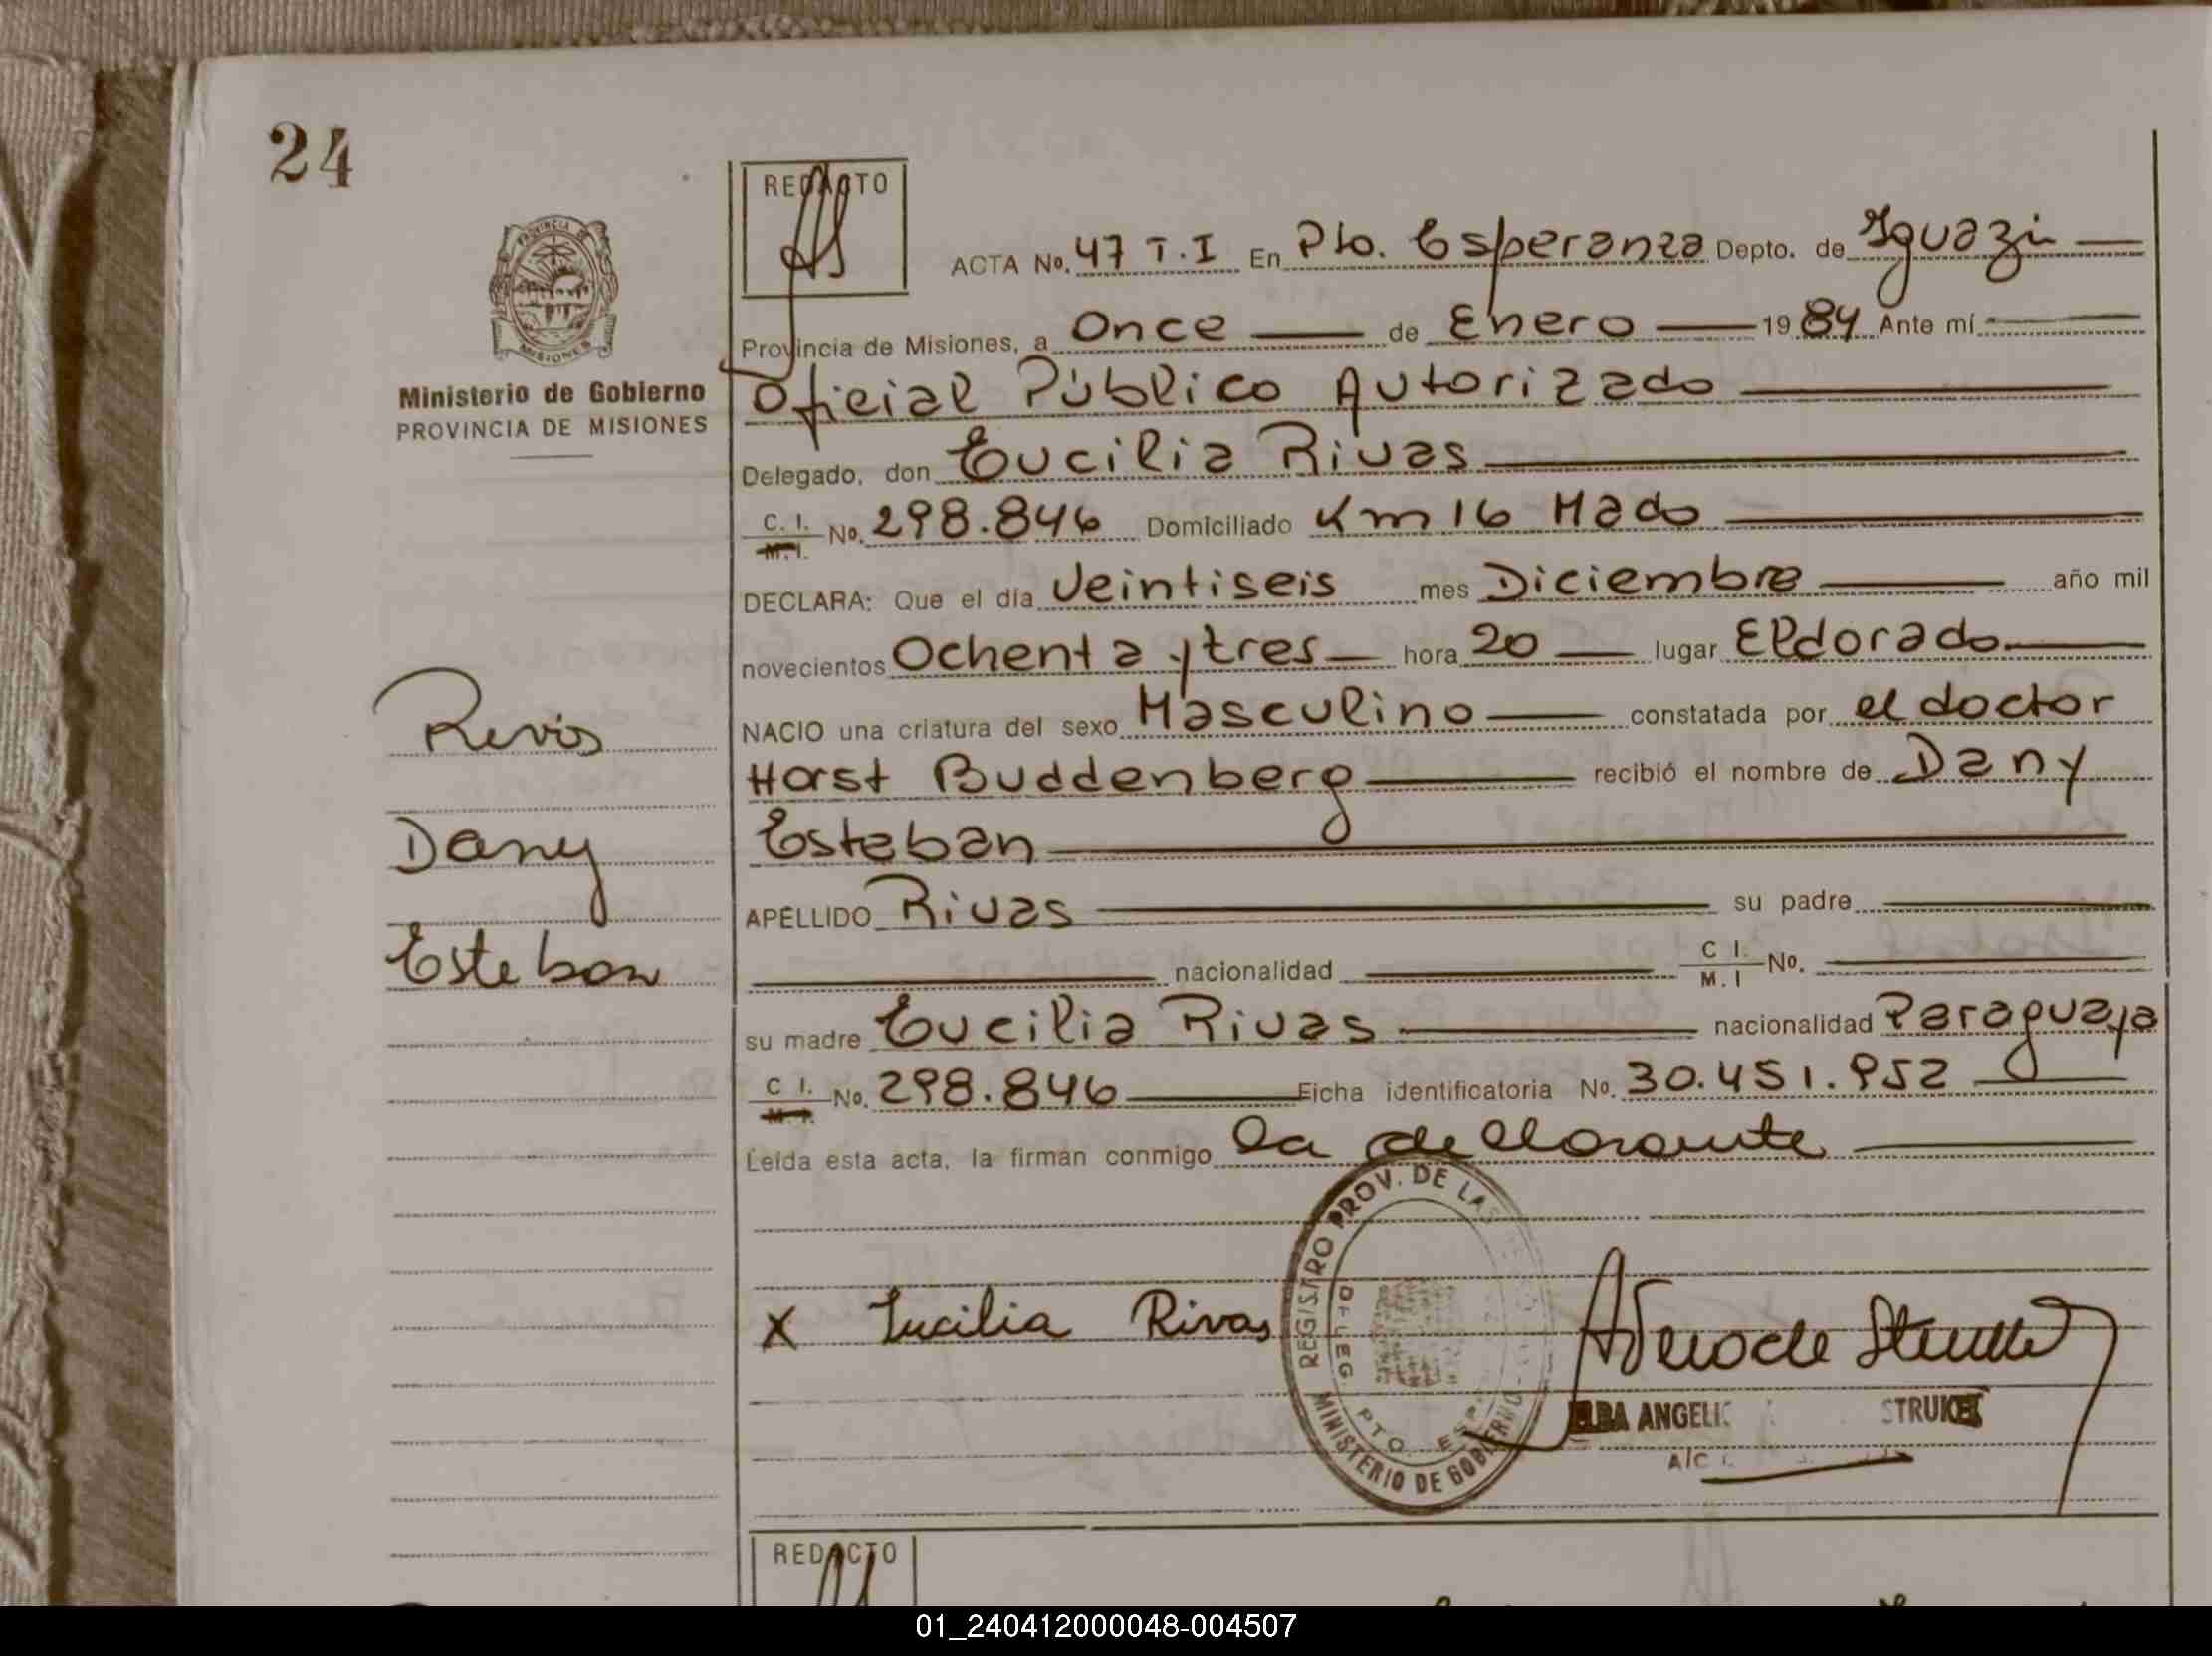 24
REDACTO
ACTA No. 47 T.I En Pto. Esperanza Depto. de Iguazú
Provincia de Misiones, a Once de Enero 1984 Ante mí
Ministerio de Gobierno
PROVINCIA DE MISIONES
Oficial Público Autorizado
Delegado, don Eucilia Rivas
C. I. M. I. No. 298.846 Domiciliado Km 16 Mado
DECLARA: Que el día Veintiseis mes Diciembre año mil
novecientos Ochenta y tres hora 20 lugar Eldorado
NACIO una criatura del sexo Masculino constatada por el doctor
Rivas
Horst Buddenberg recibió el nombre de Dany
Dany
Esteban
APELLIDO Rivas su padre
Esteban
nacionalidad C I. M. I No.
su madre Eucilia Rivas nacionalidad Paraguaya
C I. M. I. No. 298.846 Ficha identificatoria No. 30.451.952
Leída esta acta, la firman conmigo la declarante
REGISTRO PROV. DE LAS
DELEG. PTO. ESP
MINISTERIO DE GOBIERNO
X Eucilia Rivas
ELBA ANGELI STRUKE
A/C
REDACTO
01_240412000048-004507